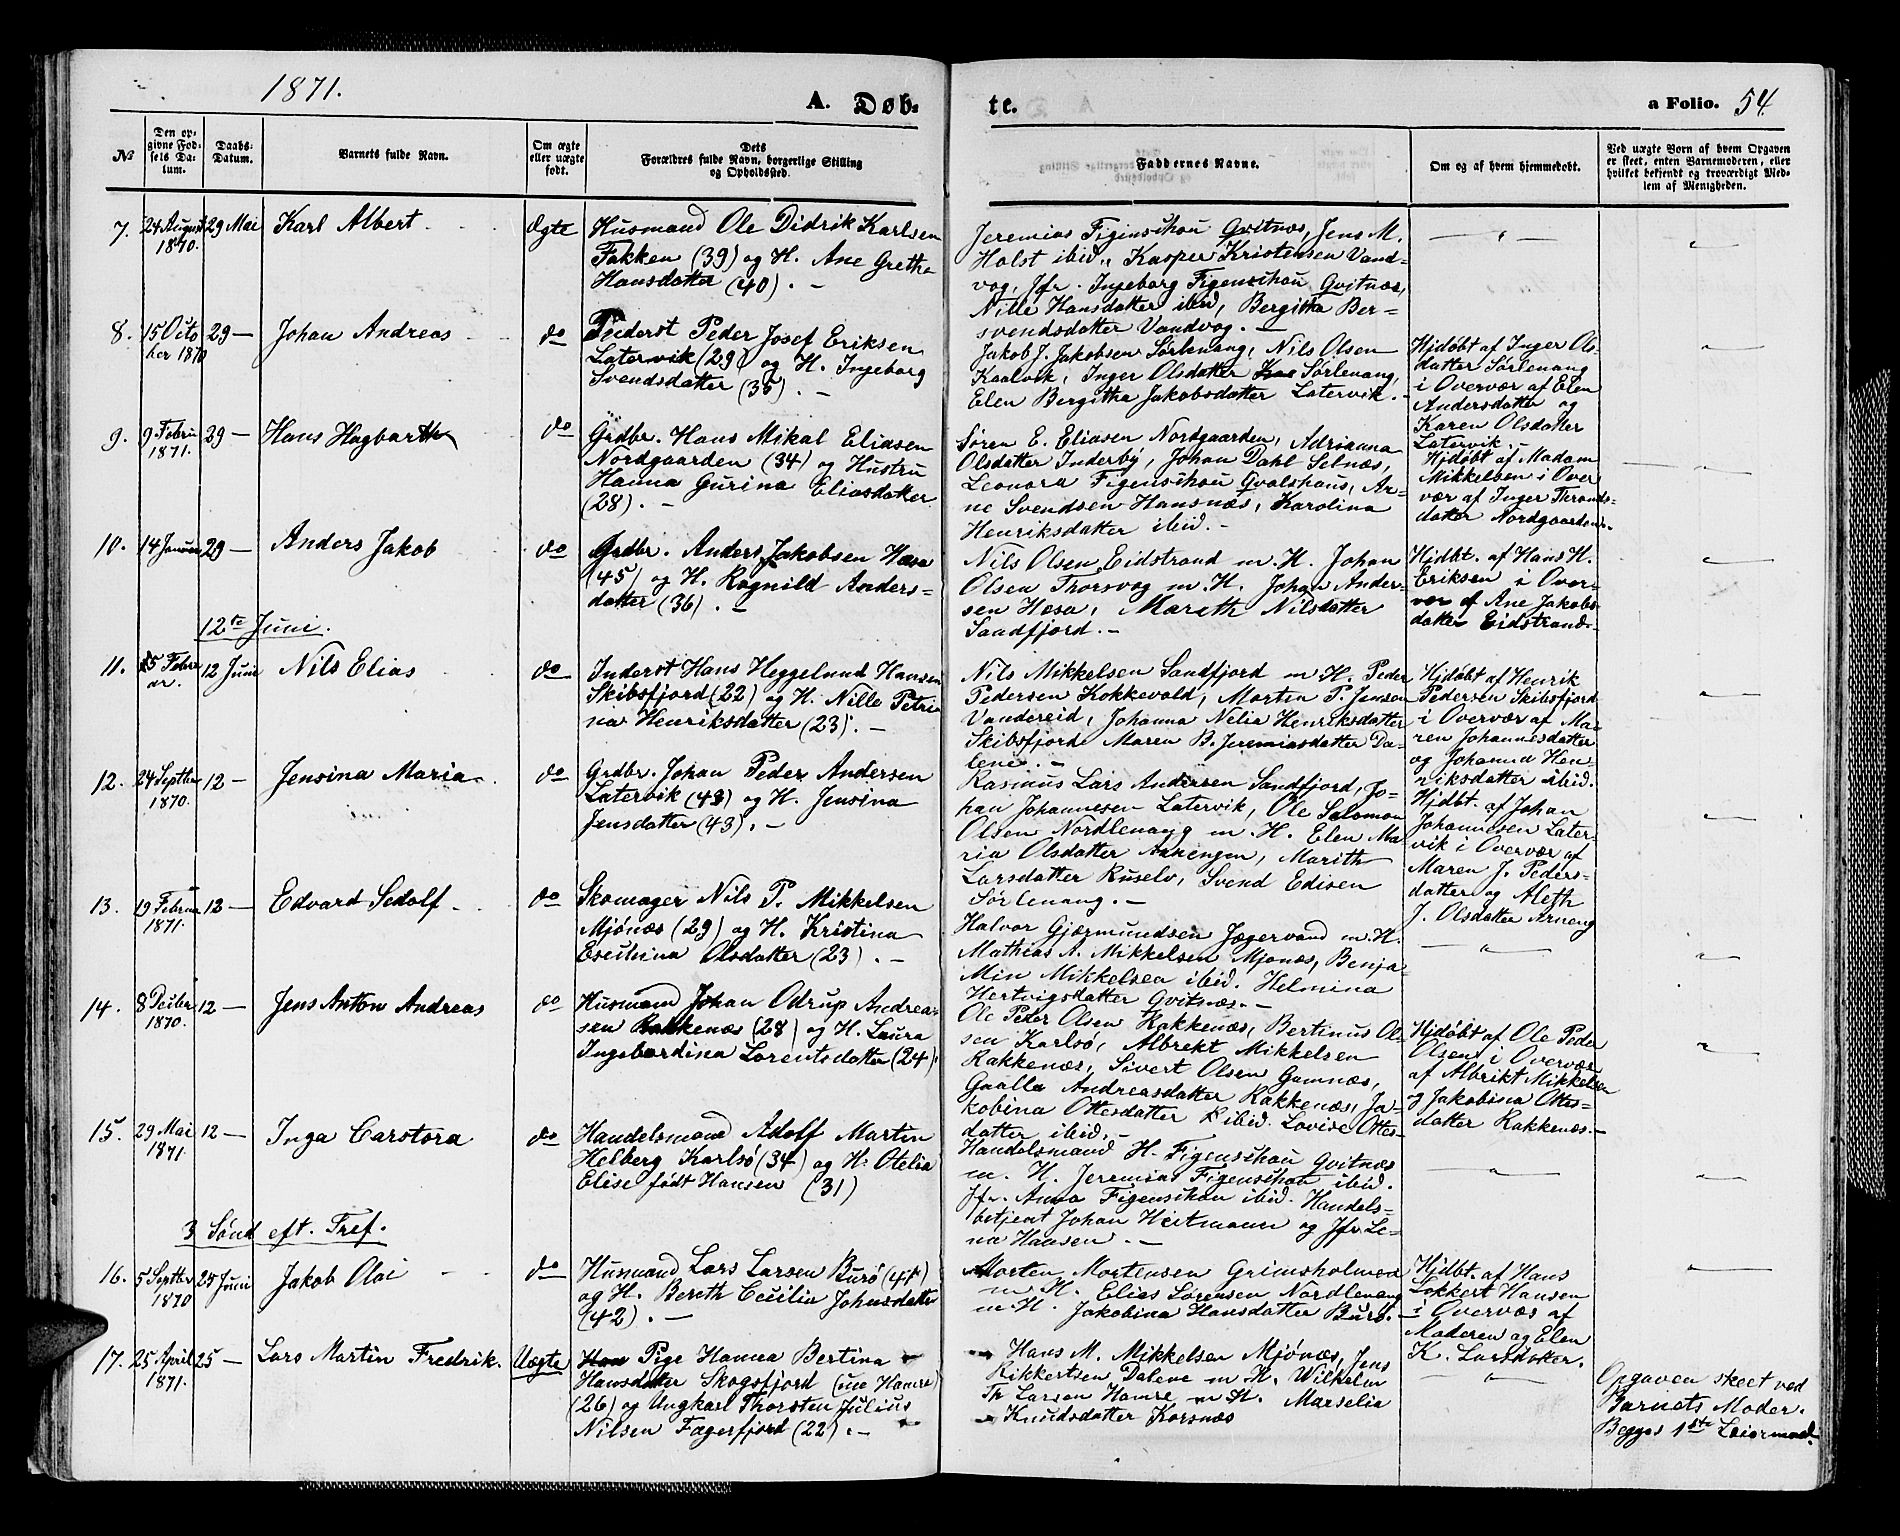 1871.
A. Døb-
te.
a Folio. 54.
No
Den op-
givne Fød-
sels Da-
tum.
Daabs-
Datum.
Barnets fulde Navn.
Om ægte
eller uægte
født.
Dets
Forældres fulde Navn, borgerlige Stilling
og Opholdssted.
Faddernes Navne.
Om og af hvem hjemmedøbt.
Ved uægte Born af hvem Opgaven
er skeet, enten Barnemoderen, eller
hvilket bekjendt og troværdigt Med-
lem af Menigheden.
7. 24 August 1870. 29 Mai Karl Albert Ægte
Husmand Ole Didrik Karlsen
Fakken (39) og H. Ane Grethe
Hansdatter (40). -
Jeremias Figenschou Gvitnæs, Jens M.
Holst ibid., Kasper Kristensen Vand-
vag, Jfr. Ingeborg Figenschou Gvitnæs,
Nille Hansdatter ibid, Bergitha Ber-
svendsdatter Vandvag. -
8. 15 Octo ber 1870 29 — Johan Andreas do
Inderst Peder Josef Eriksen
Latervik (29) og H. Ingeborg
Svendsdatter (35). -
Jakob J. Jakobsen Sørlenang, Nils Olsen
Kaalvik, Inger Olsdatter Sørlenang,
Elen Bergitha Jakobsdatter Latervik. -
Hjdøbt af Inger Ols-
datter Sørlenang
i Overvær af Elen
Andersdatter og
Karen Olsdatter
Latervik.
9. 9 Febru 1871. 29 — Hans Hagbarth do
Grdbr. Hans Mikal Eliasen
Nordgaarden (34) og Hustru
Hanna Gurina Eliasdatter
(28). -
Søren E. Eliasen Nordgaarden, Adrianna
Olsdatter Inderby, Johan Dahl Selnæs,
Leonora Figenschou Gvalshaus, Ar-
ne Svendsen Hansnæs, Karolina
Henriksdatter ibid. -
Hjdøbt af Madam
Mikkelsen i Over
vær af Inger Thronds-
datter Nordgaarden.
10. 14 Januar 29 — Anders Jakob do
Grdbr. Anders Jakobsen Hæsa
(45) og H. Ragnild Anders-
datter (36). -
Nils Olsen Eidstrand m. H. Johan
Olsen Thorsvag m. H. Johan Ander-
sen Hæsa, Mareth Nilsdatter
Sandfjord. -
Hjdbt. af Hans H.
Eriksen i Over-
vær af Ane Jakobs-
datter Eidstrand.
12te Juni.
11. 15 Febru ar. 12 Juni Nils Elias do
Inderst Hans Heggelund Hansen
Skibsfjord (22) og H. Nille Petri
na Henriksdatter (23). -
Nils Mikkelsen Sandfjord m H. Peder
Pedersen Kokkevold, Morten P. Jensen
Vandereid, Johanna Nelia Henriksdatter
Skibsfjord Maren B. Jeremiasdatter Da-
lene. -
Hjdøbt af Henrik
Pedersen Skibsfjord
i Overvær af Ma-
ren Johannesdatter
og Johanna Hen-
riksdatter ibid.
12. 24 Septbr 1870. 12 — Jensina Maria do
Grdbr. Johan Peder Andersen
Latervik (43) og H. Jensina
Jensdatter (43). -
Rasmus Lars Andersen Sandfjord, Jo-
han Johannesen Latervik, Ole Salomon
Olsen Nordlenang m. H. Elen Ma-
ria Olsdatter Arnengen, Marith
Larsdatter Ruselv, Svend Edisen
Sørlenang. -
Hjdbt. af Johan
Johannesen Later-
vik i Overvær af
Maren J. Peders-
datter og Aleth
J. Olsdatter Arneng
13. 19 Februar 1871. 12 — Edvard Sedolf do
Skomager Nils P. Mikkelsen
Mjønæs (29) og H. Kristina
Eselina Olsdatter (23). -
Halvor Gjørmundsen Jægervand m. H.
Mathias A. Mikkelsen Mjønæs, Benja-
min Mikkelsen ibid. Helmina
Hertvigsdatter Gvitnæs. -
14. 8 Decbr 1870. 12 — Jens Anton Andreas do
Husmand Johan Odrup Andrea-
sen Rakkenæs (28) og H. Laura
Ingebordina Lorentsdatter (24).
Ole Peder Olsen Rakkenæs, Bertinus Ol-
sen Karlsø, Albrekt Mikkelsen
Rakkenæs, Sivert Olsen Gamnæs,
Gaalla Andreasdatter Rakkenæs, Ja-
kobina Ottesdatter ibid. Lovise Ottes-
datter ibid. -
Hjdøbt af Ole Peder
Olsen i Overvær
af Albrikt Mikkelsen
og Jakobina Ottes-
datter Rakkenæs. -
15. 29 Mai 1871. 12 — Inga Carstora do
Handelsmand Adolf Martin
Helberg Karlsø (34) og H. Otelia
Elise født Hansen (31)
Handelsmand H. Figenschou Gvitnæs
m. H. Jeremias Figenschou ibid.
Jfr. Anna Figenschou ibid. Handels-
betjent Johan Heitmann og Jfr. Le-
na Hansen. -
3 Sønd eft. Tref.
16. 5 Septbr 1870 25 Juni Jakob Olai do
Husmand Lars Larsen Burø (41)
og H. Bereth Cecilia Johnsdatter
(42). -
Morten Mortensen Grimsholmen
m H. Elias Sørensen Nordlenang
m H. Jakobina Hansdatter Burø. -
Hjdbt. af Hans
Lokkert Hansen
i Overvær af
Moderen og Elen
K. Larsdatter.
17. 25 April 1871. 25 — Lars Martin Fredrik. Uægte
Pige Hanna Bertina
Hansdatter Skogsfjord (nu Hamre)
(26) og Ungkarl Thorsten Julius
Nilsen Fagerfjord (22). -
Hans M. Mikkelsen Mjønæs, Jens
Rikkertsen Dalene m H. Wilhelm
Th Larsen Hamre m H. Marselia
Knudsdatter Korsnæs
Opgaven skeet ved
Barnets Moder.
Begges 1ste Leiermaal.